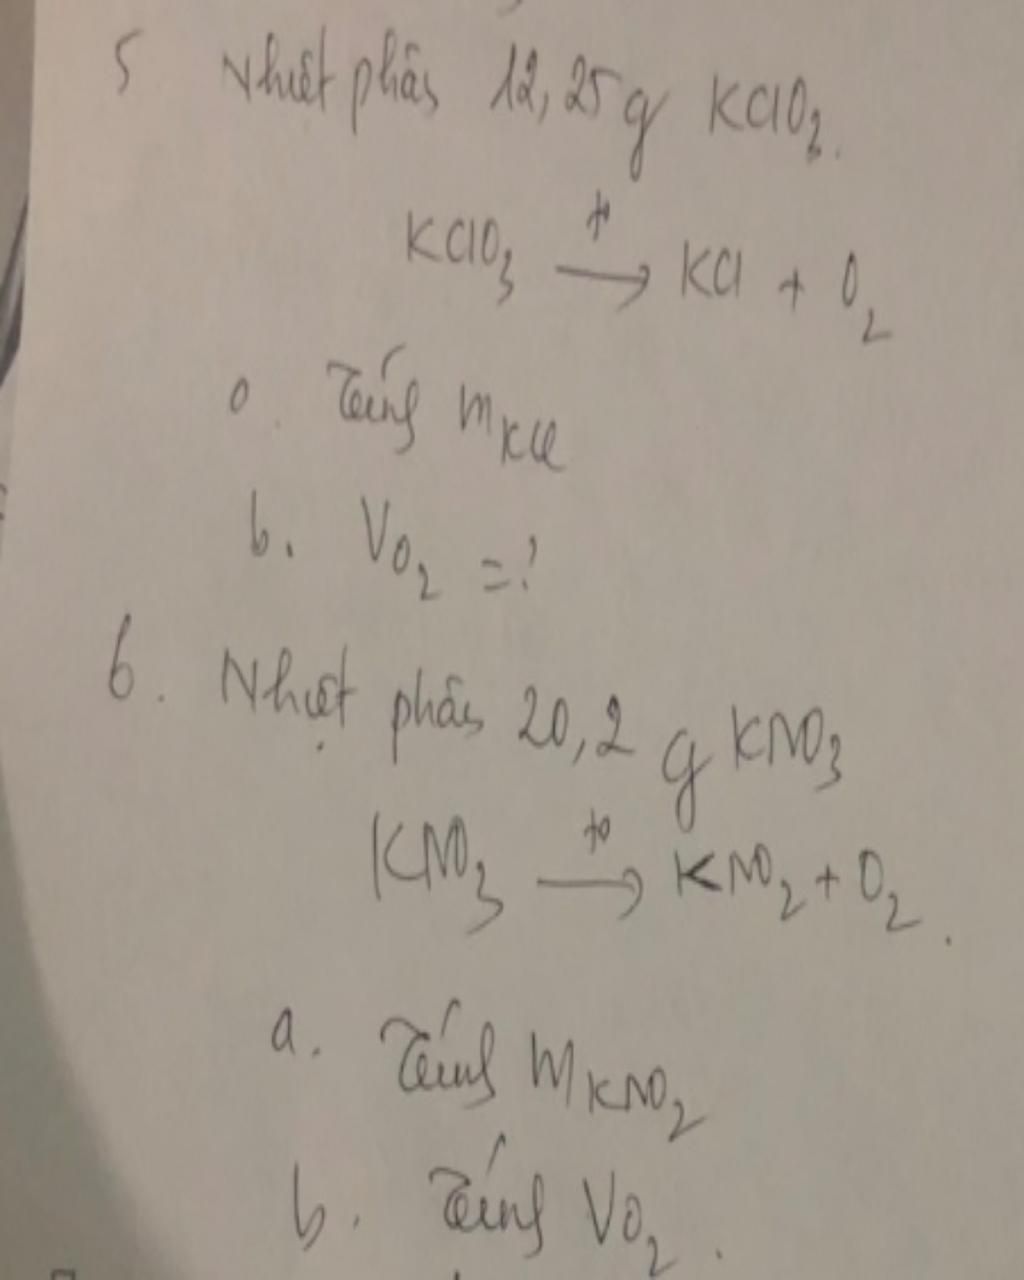 5 Nhiệt phân 12,25g KClO3.
KClO3 t° → KCl + O2
a. Tính mKCl
b. VO2 = ?
6. Nhiệt phân 20,2 g KNO3
KNO3 t° → KNO2 + O2.
a. Tính mKNO2
b. Tính VO2.